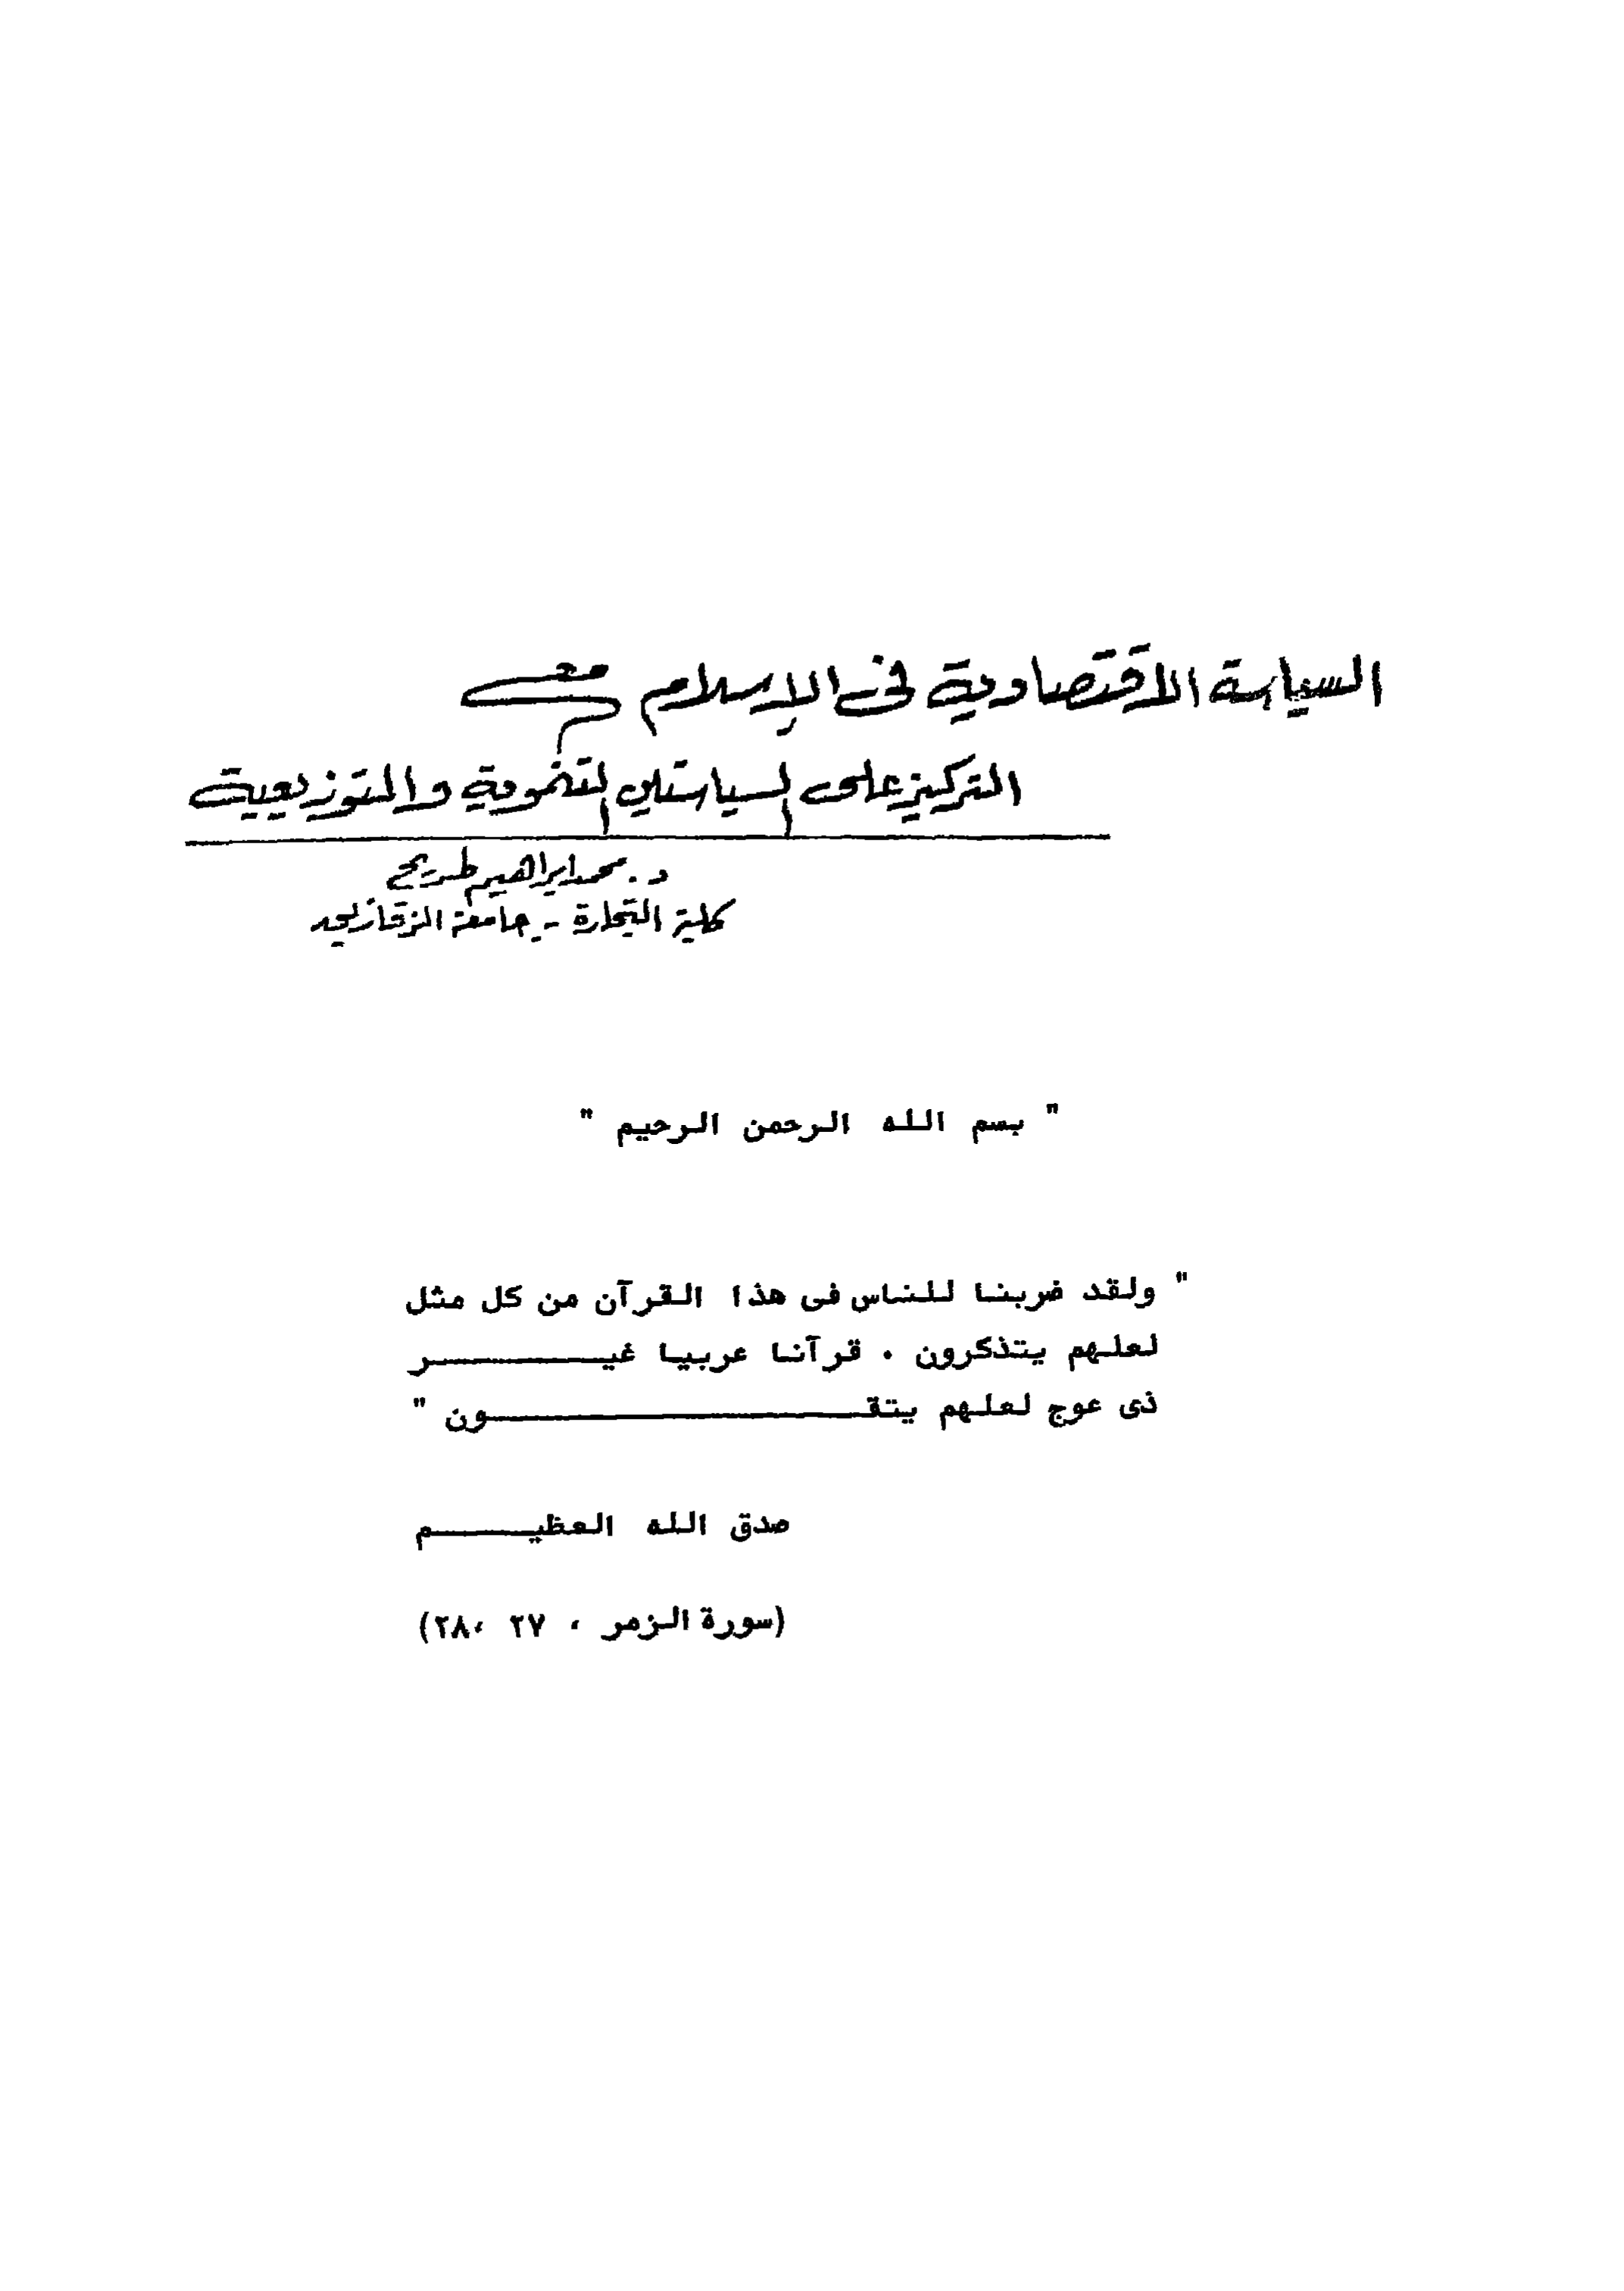 السياسة الاقتصادية فى الإسلام مع
التركيز على السياستين التنموية والتوزيعية
د. محمد ابراهيم طريح
كلية التجارة - جامعة الزقازيق
" بسم الله الرحمن الرحيم "
" ولقد ضربنا للناس فى هذا القرآن من كل مثل
لعلهم يتذكرون . قرآنا عربيا غيـــــــــــر
ذى عوج لعلهم يتقـــــــــــــــــــــون "
صدق الله العظيـــــــم
(سورة الزمر ، ٢٧ ،٢٨)